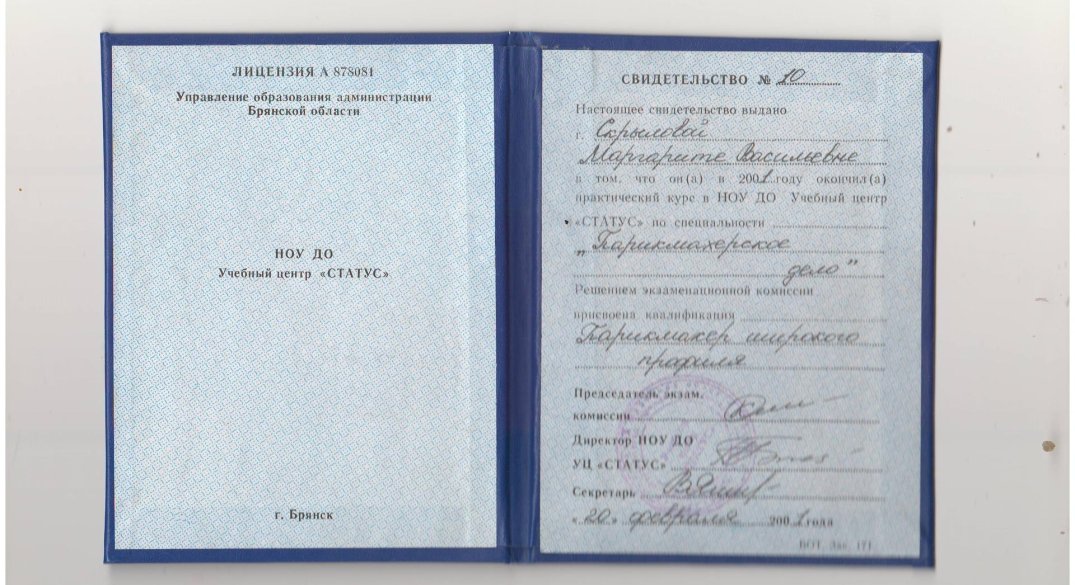 ЛИЦЕНЗИЯ А 878081
Управление образования администрации
Брянской области
НОУ ДО
Учебный центр «СТАТУС»
г. Брянск
СВИДЕТЕЛЬСТВО № 10
Настоящее свидетельство выдано
г. Скрыловой
Маргарите Васильевне
в том, что он(а) в 2001 году окончил(а)
практический курс в НОУ ДО Учебный центр
«СТАТУС» по специальности
„Парикмахерское
дело"
Решением экзаменационной комиссии
присвоена квалификация
Парикмахер широкого
профиля
Председатель экзам.
комиссии
Директор НОУ ДО
УЦ «СТАТУС»
Секретарь
«20» февраля 2001 года
БОТ. Зак. 171